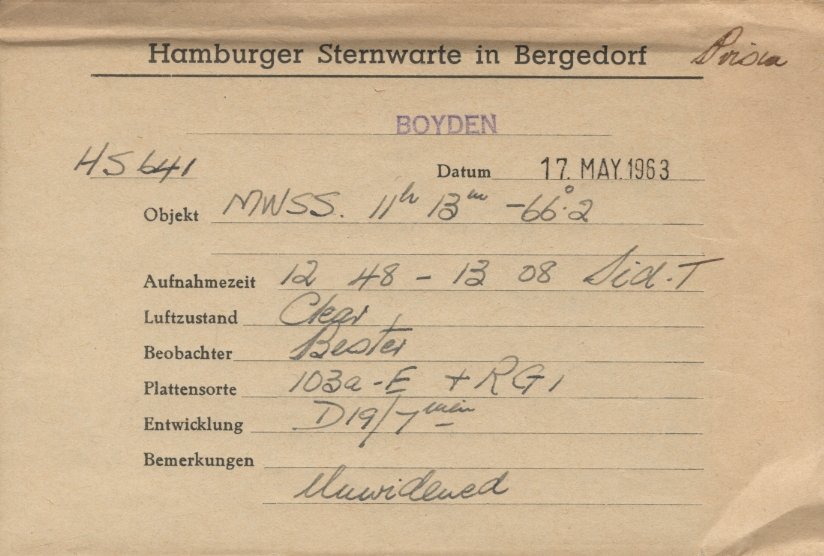 Hamburger Sternwarte in Bergedorf
BOYDEN
HS 641
Datum 17. MAY. 1963
Objekt MWSS. 11h 13m -66°.2
Aufnahmezeit 12 48 - 13 08 Sid. T
Luftzustand Clear
Beobachter Bester
Plattensorte 103a-E + RG1
Entwicklung D19/7min
Bemerkungen
Unwidened